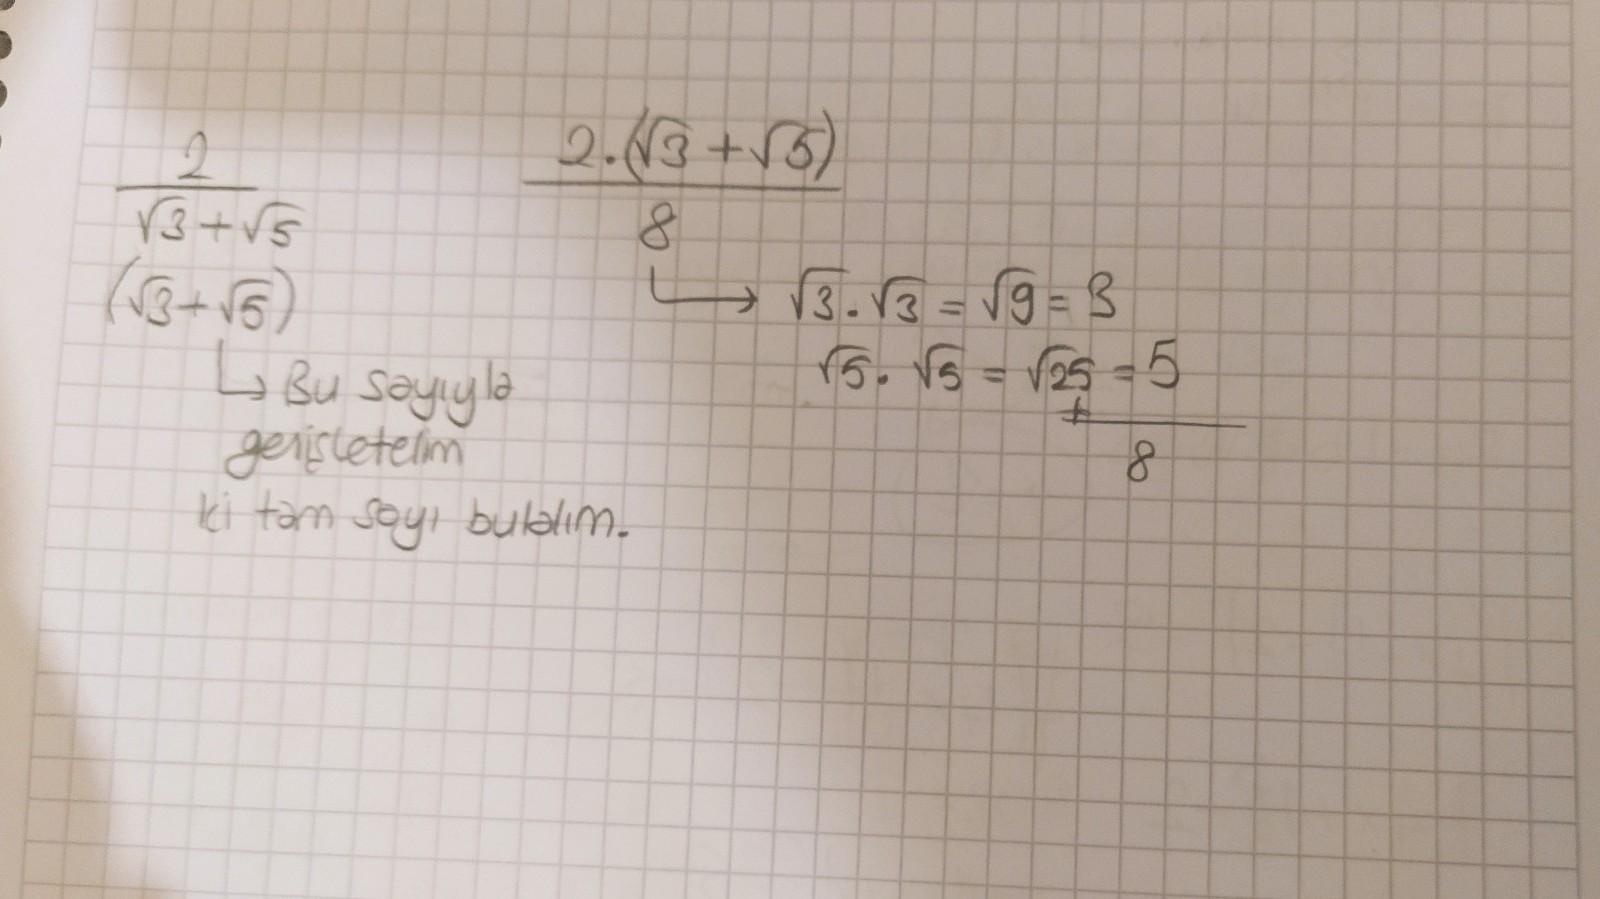 2 / (√3 + √5)
(√3 + √5)
↳ Bu sayıyla
genişletelim
ki tam sayı bulalım.
2.(√3 + √5) / 8
→ √3 . √3 = √9 = 3
√5 . √5 = √25 = 5
+
8